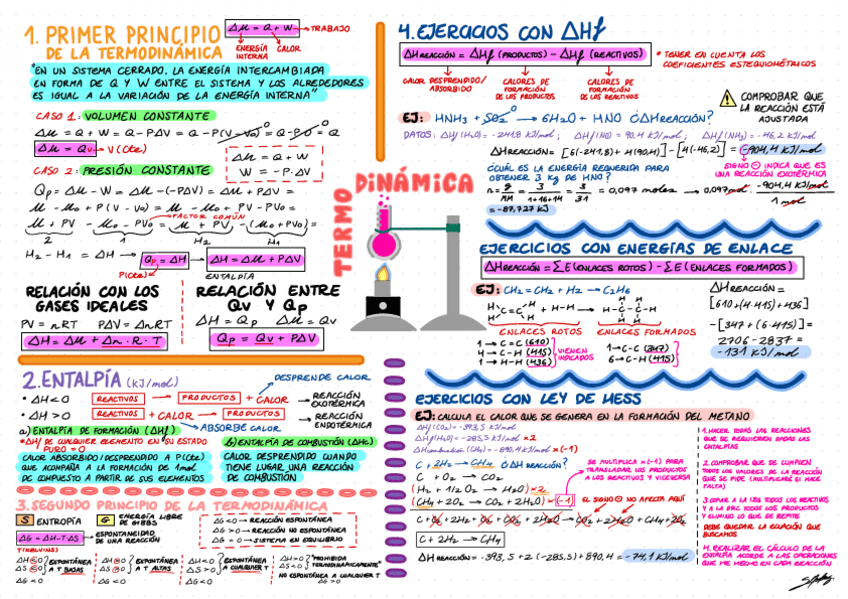 1. PRIMER PRINCIPIO
DE LA TERMODINÁMICA
ΔU = Q + W → TRABAJO
ENERGÍA INTERNA
CALOR
"EN UN SISTEMA CERRADO, LA ENERGÍA INTERCAMBIADA
EN FORMA DE Q Y W ENTRE EL SISTEMA Y LOS ALREDEDORES
ES IGUAL A LA VARIACIÓN DE LA ENERGÍA INTERNA"
CASO 1: VOLUMEN CONSTANTE
ΔU = Q + W = Q - PΔV = Q - P(V - V0) = Q - P·0 = Q
ΔU = Qv → V (Cte)
CASO 2: PRESIÓN CONSTANTE
ΔU = Q + W
W = -P·ΔV
Qp = ΔU - W = ΔU - (-PΔV) = ΔU + PΔV =
U - U0 + P(V - V0) = U - U0 + PV - PV0 =
FACTOR COMÚN
U + PV - U0 - PV0 = U + PV - (U0 + PV0) =
2 1 H2 H1
H2 - H1 = ΔH → Qp = ΔH → ΔH = ΔU + PΔV
P(Cte) ENTALPÍA
RELACIÓN CON LOS
GASES IDEALES
PV = nRT PΔV = ΔnRT
ΔH = ΔU + Δn·R·T
RELACIÓN ENTRE
Qv Y Qp
ΔH = Qp ΔU = Qv
Qp = Qv + PΔV
2. ENTALPÍA (KJ/mol)
DESPRENDE CALOR
• ΔH<0 REACTIVOS → PRODUCTOS + CALOR → REACCIÓN EXOTÉRMICA
• ΔH>0 REACTIVOS + CALOR → PRODUCTOS → REACCIÓN ENDOTÉRMICA
ABSORBE CALOR
a) ENTALPÍA DE FORMACIÓN (ΔHf)
*ΔHf DE CUALQUIER ELEMENTO EN SU ESTADO
PURO = 0
CALOR ABSORBIDO/DESPRENDIDO A P(Cte)
QUE ACOMPAÑA A LA FORMACIÓN DE 1 mol
DE COMPUESTO A PARTIR DE SUS ELEMENTOS
b) ENTALPÍA DE COMBUSTIÓN (ΔHc)
CALOR DESPRENDIDO CUANDO
TIENE LUGAR UNA REACCIÓN
DE COMBUSTIÓN
3. SEGUNDO PRINCIPIO DE LA TERMODINÁMICA
S ENTROPÍA G ENERGÍA LIBRE DE GIBBS
ΔG = ΔH - T·ΔS → ESPONTANEIDAD DE UNA REACCIÓN
T(KELVINS)
ΔG<0 → REACCIÓN ESPONTÁNEA
ΔG>0 → REACCIÓN NO ESPONTÁNEA
ΔG = 0 → SISTEMA EN EQUILIBRIO
ΔH<0 ΔS<0 ESPONTÁNEA A T BAJAS
ΔG<0
ΔH>0 ΔS>0 ESPONTÁNEA A T ALTAS
ΔG<0
ΔH<0 ΔS>0 ESPONTÁNEA A CUALQUIER T
ΔG<0
ΔH>0 ΔS<0 "PROHIBIDA TERMODINÁMICAMENTE"
NO ESPONTÁNEA A CUALQUIER T
ΔG>0
TERMO
DINÁMICA
4. EJERCICIOS CON ΔHf
ΔH REACCIÓN = ΔHf (PRODUCTOS) - ΔHf (REACTIVOS)
* TENER EN CUENTA LOS
COEFICIENTES ESTEQUIOMÉTRICOS
CALOR DESPRENDIDO/ABSORBIDO
VALORES DE FORMACIÓN DE LOS PRODUCTOS
VALORES DE FORMACIÓN DE LOS REACTIVOS
COMPROBAR QUE
LA REACCIÓN ESTÁ
AJUSTADA
EJ: HNH3 + 5O2 → 6H2O + HNO ¿ΔH REACCIÓN?
DATOS: ΔHf (H2O) = -241,8 KJ/mol; ΔHf (NO) = 90,4 KJ/mol; ΔHf (NH3) = -46,2 KJ/mol
ΔH REACCIÓN = [6(-241,8) + 4(90,4)] - [4(-46,2)] = -904,4 KJ/mol
SIGNO ⊖ INDICA QUE ES
UNA REACCIÓN EXOTÉRMICA
¿CUÁL ES LA ENERGÍA REQUERIDA PARA
OBTENER 3 Kg DE HNO?
n = g/MM = 3/1+16+14 = 3/31 = 0,097 moles → 0,097 mol · -904,4 KJ/mol / 1 mol
= -87,727 KJ
EJERCICIOS CON ENERGÍAS DE ENLACE
ΔH REACCIÓN = ΣE (ENLACES ROTOS) - ΣE (ENLACES FORMADOS)
EJ: CH2 = CH2 + H2 → C2H6
ENLACES ROTOS ENLACES FORMADOS
1 → C=C (610)
4 → C-H (415)
1 → H-H (436)
VIENEN INDICADOS
1 → C-C (347)
6 → C-H (415)
ΔH REACCIÓN =
[610 + (4·415) + 436]
- [347 + (6·415)] =
2706 - 2837 =
-131 KJ/mol
EJERCICIOS CON LEY DE HESS
EJ: CALCULA EL CALOR QUE SE GENERA EN LA FORMACIÓN DEL METANO
ΔHf (CO2) = -393,5 KJ/mol
ΔHf (H2O) = -285,5 KJ/mol × 2
ΔH combustión (CH4) = -890,4 KJ/mol × (-1)
C + 2H2 → CH4 ¿ΔH REACCIÓN?
C + O2 → CO2
(H2 + 1/2 O2 → H2O) × 2
(CH4 + 2O2 → CO2 + 2H2O) × (-1)
SE MULTIPLICA × (-1) PARA
TRANSLADAR LOS PRODUCTOS
A LOS REACTIVOS Y VICEVERSA
EL SIGNO ⊖ NO AFECTA AQUÍ
C + O2 + 2H2 + O2 + CO2 + 2H2O → CO2 + 2H2O + CH4 + 2O2
C + 2H2 → CH4
ΔH REACCIÓN = -393,5 + 2(-285,5) + 890,4 = -74,1 KJ/mol
1. HACER TODAS LAS REACCIONES
QUE SE REQUIEREN DADAS LAS
ENTALPÍAS
2. COMPROBAR QUE SE CUMPLEN
TODOS LOS VALORES DE LA REACCIÓN
QUE SE PIDE (MULTIPLICARÉ SI HACE
FALTA)
3. COPIAR A LA IZQ TODOS LOS REACTIVOS
Y A LA DRC TODOS LOS PRODUCTOS
Y ELIMINO LO QUE SE REPITE
DEBE QUEDAR LA ECUACIÓN QUE
BUSCAMOS
4. REALIZAR EL CÁLCULO DE LA
ENTALPÍA ACORDE A LAS OPERACIONES
QUE HE HECHO EN CADA REACCIÓN